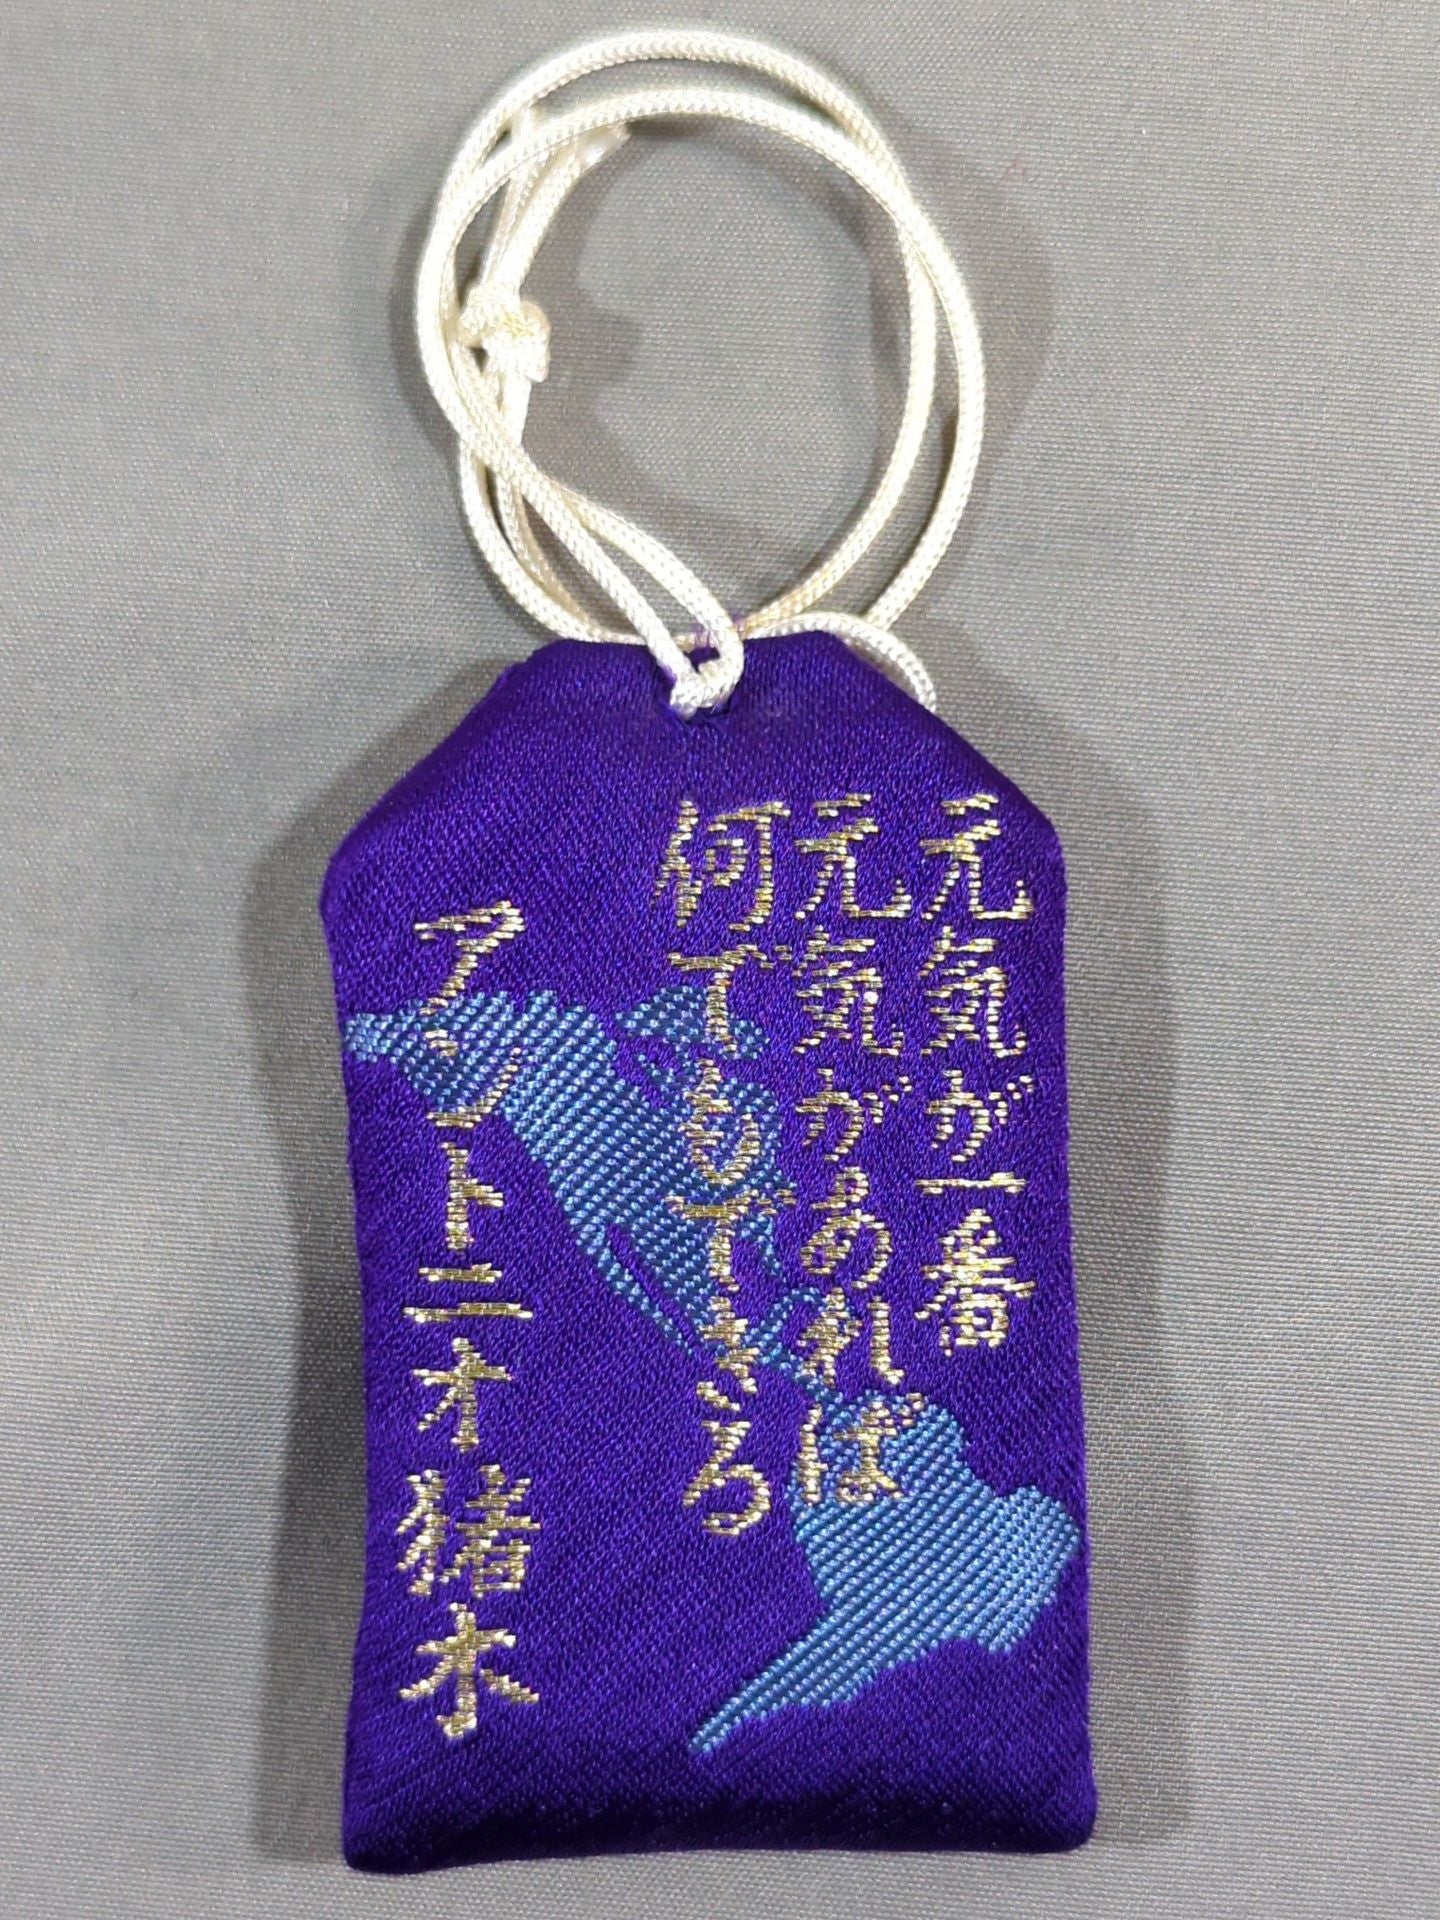 元気が一番
元気があれば
何でもできる
アントニオ猪木